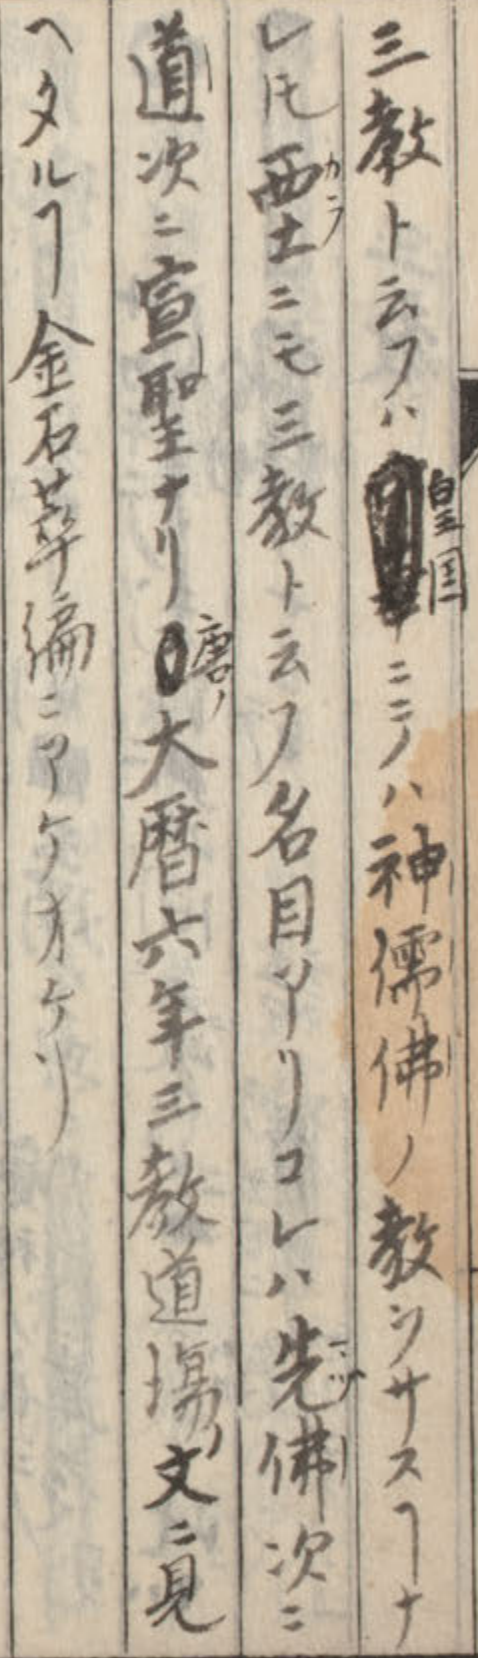 三教ト云フハ皇国ニテノハ神儒佛ノ教ヲサスヿナ
レ𪜈西土カラニモ三教ト云フ名目アリコレハ先マヅ佛次ニ
道次ニ宣聖ナリ唐ノ大暦六年三教道場ノ文ニ見
ヘタルヿ金石萃編ニアケオケリ